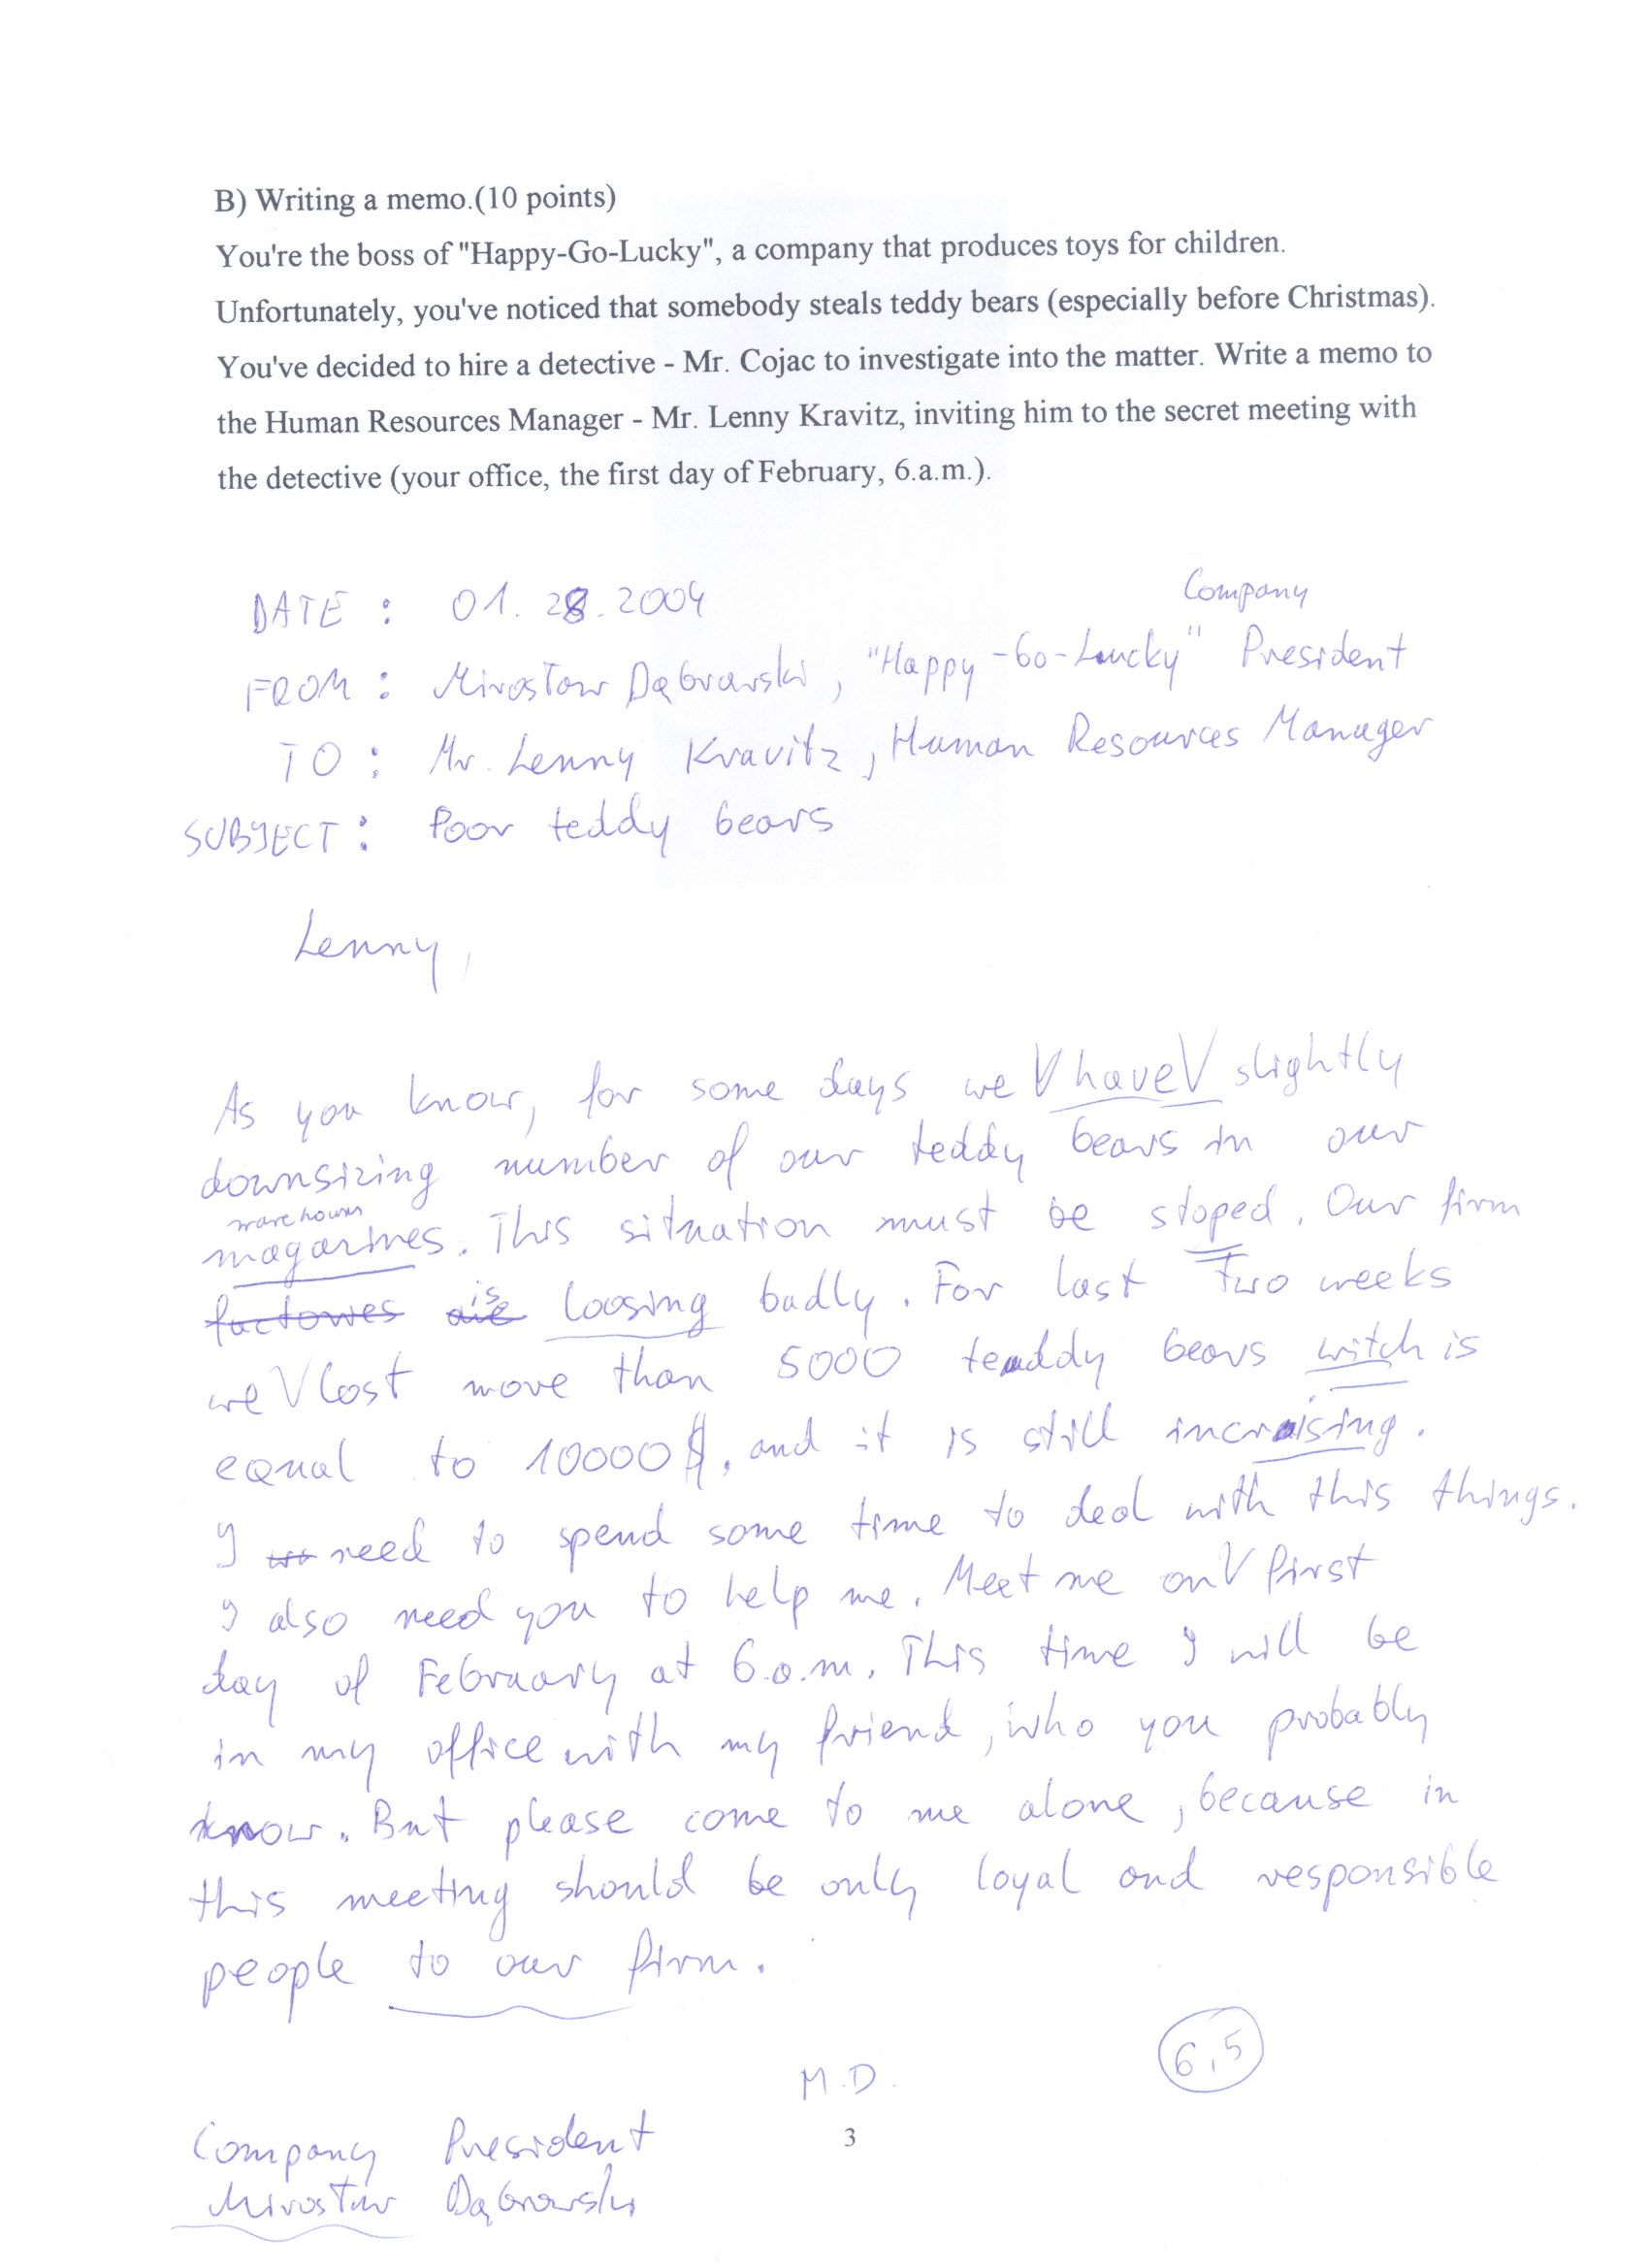 B) Writing a memo.(10 points)
You're the boss of "Happy-Go-Lucky", a company that produces toys for children.
Unfortunately, you've noticed that somebody steals teddy bears (especially before Christmas).
You've decided to hire a detective - Mr. Cojac to investigate into the matter. Write a memo to
the Human Resources Manager - Mr. Lenny Kravitz, inviting him to the secret meeting with
the detective (your office, the first day of February, 6.a.m.).
DATE : 01. 28. 2004
Company
FROM : Mirosław Dąbrowski, "Happy-Go-Lucky" President
TO : Mr. Lenny Kravitz, Human Resources Manager
SUBJECT : Poor teddy bears
Lenny,
As you know, for some days we V have V slightly
downsizing number of our teddy bears in our
warehouses
magazines. This situation must be stoped. Our firm
factories are is loosing badly. For last two weeks
we V lost more than 5000 teddy bears witch is
equal to 10000 $, and it is still incraising.
I need to spend some time to deal with this things.
I also need you to help me. Meet me on V first
day of February at 6.a.m. This time I will be
in my office with my friend, who you probably
know. But please come to me alone, because in
this meeting should be only loyal and responsible
people to our firm.
6,5
M.D.
3
Company President
Mirosław Dąbrowski